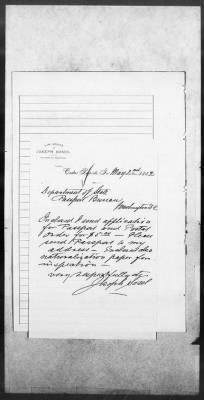 LAW OFFICE
JOSEPH
Cedar Rapids, Ia. May 2nd 1882
Department of State
Passport Bureau,
Washington D.C.
Enclosed I send application
for Passport and Postal
Order for $5.00 — Please
send Passport to my
address — Enclosed also
naturalization paper for
inspection —
Very respectfully
Joseph